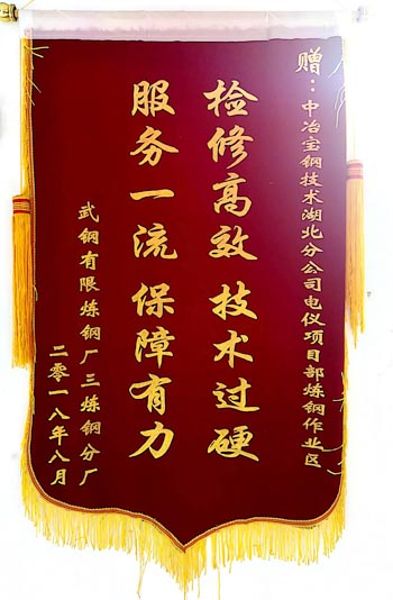 赠：中冶宝钢技术湖北分公司电仪项目部炼钢作业区
检修高效 技术过硬
服务一流 保障有力
武钢有限炼钢厂三炼钢分厂
二零一八年八月